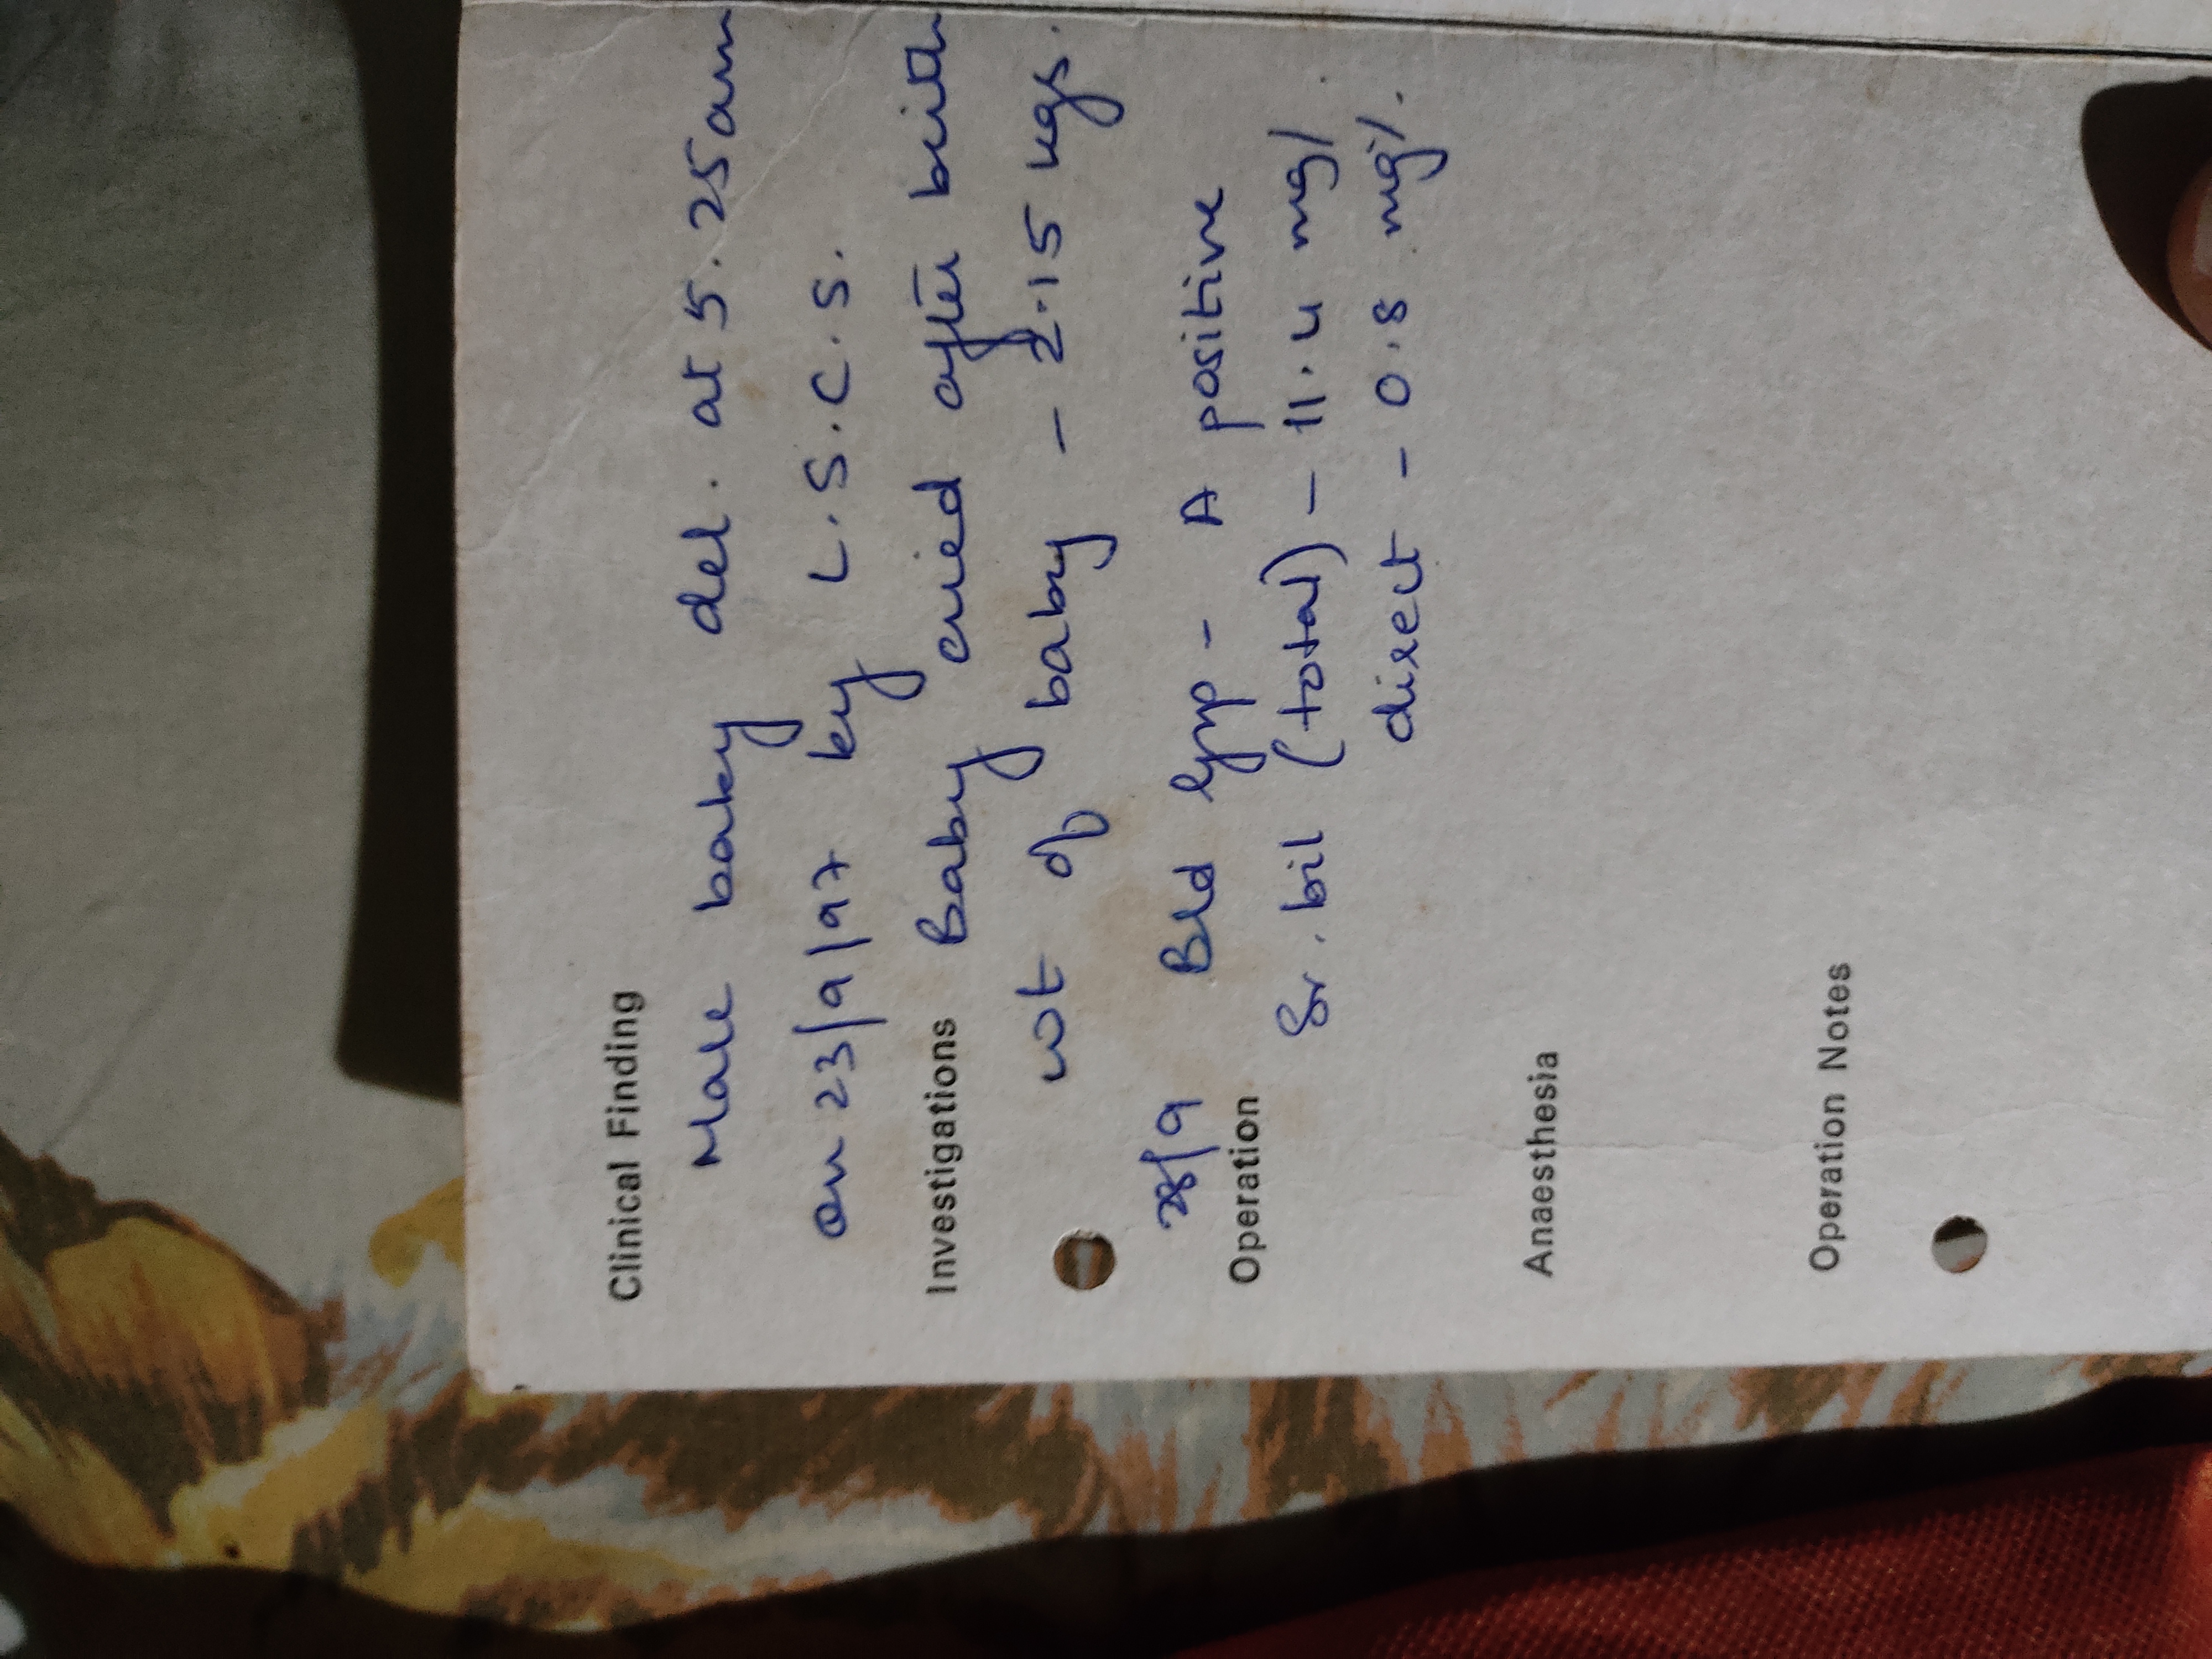 Clinical Finding
Male baby del. at 5.25am
on 23/9/97 by L.S.C.S.
Investigations Baby cried after birth
wt of baby - 2.15 kgs.
28/9 Bld Grp - A positive
Operation
Sr. bil (total) - 11.4 mg/.
direct - 0.8 mg%.
Anaesthesia
Operation Notes